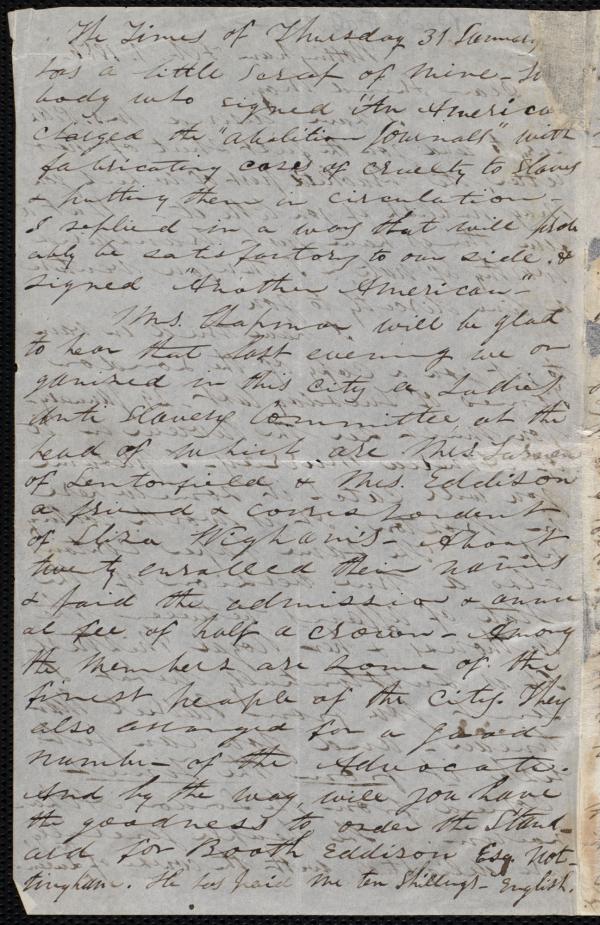 The Times of Thursday 31 January
has a little scrap of mine - 
body who signed "An America
charged the "abolition journals" with
fabricating cases of cruelty to slaves
& putting them in circulation -
I replied in a way that will prob
ably be satisfactory to our side, &
signed "Another American -"
Mrs. Chapman will be glad
to hear that last evening we or
ganized in this city a Ladies
Anti Slavery Committee, at the
head of which are Mrs.
of Lentonfield & Mrs. Eddison
a friend & correspondent
of Eliza Wigham's - About
twenty enrolled their names
& paid the admission & annu
al fee of half a crown - Among
the members are some of the
finest people of the city. They
also arranged for a good
number of the Advocate.
And by the way, will you have
the goodness to order the Stand-
ard for Booth Eddison Esq. Not-
tingham. He has paid me ten shillings - English.